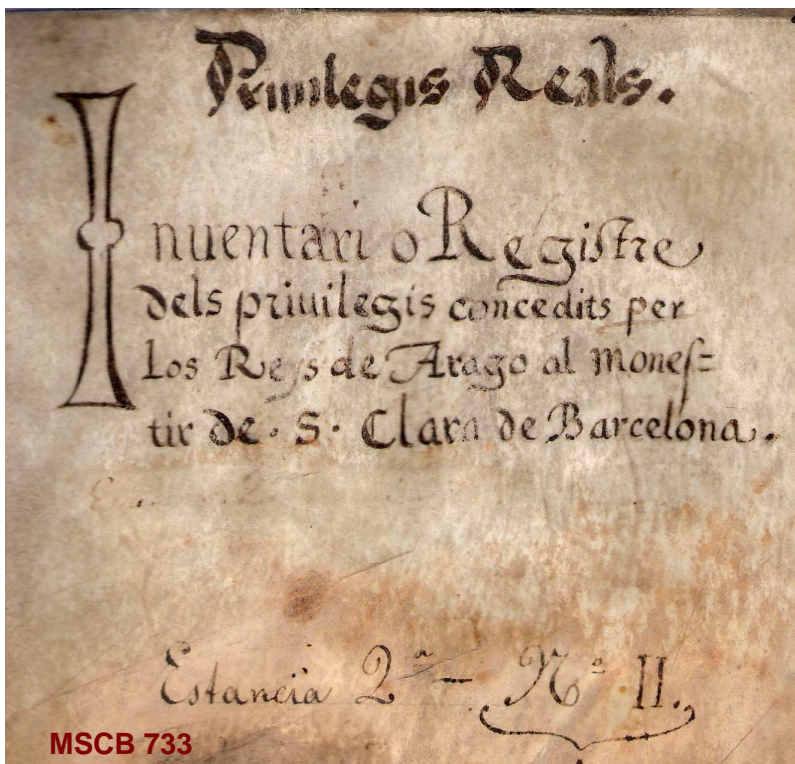 Priuilegis Reals.
Inuentari o Registre
dels priuilegis concedits per
los Reys de Arago al mones=
tir de. S. Clara de Barcelona.
Estancia 2ª - Nº II.
MSCB 733